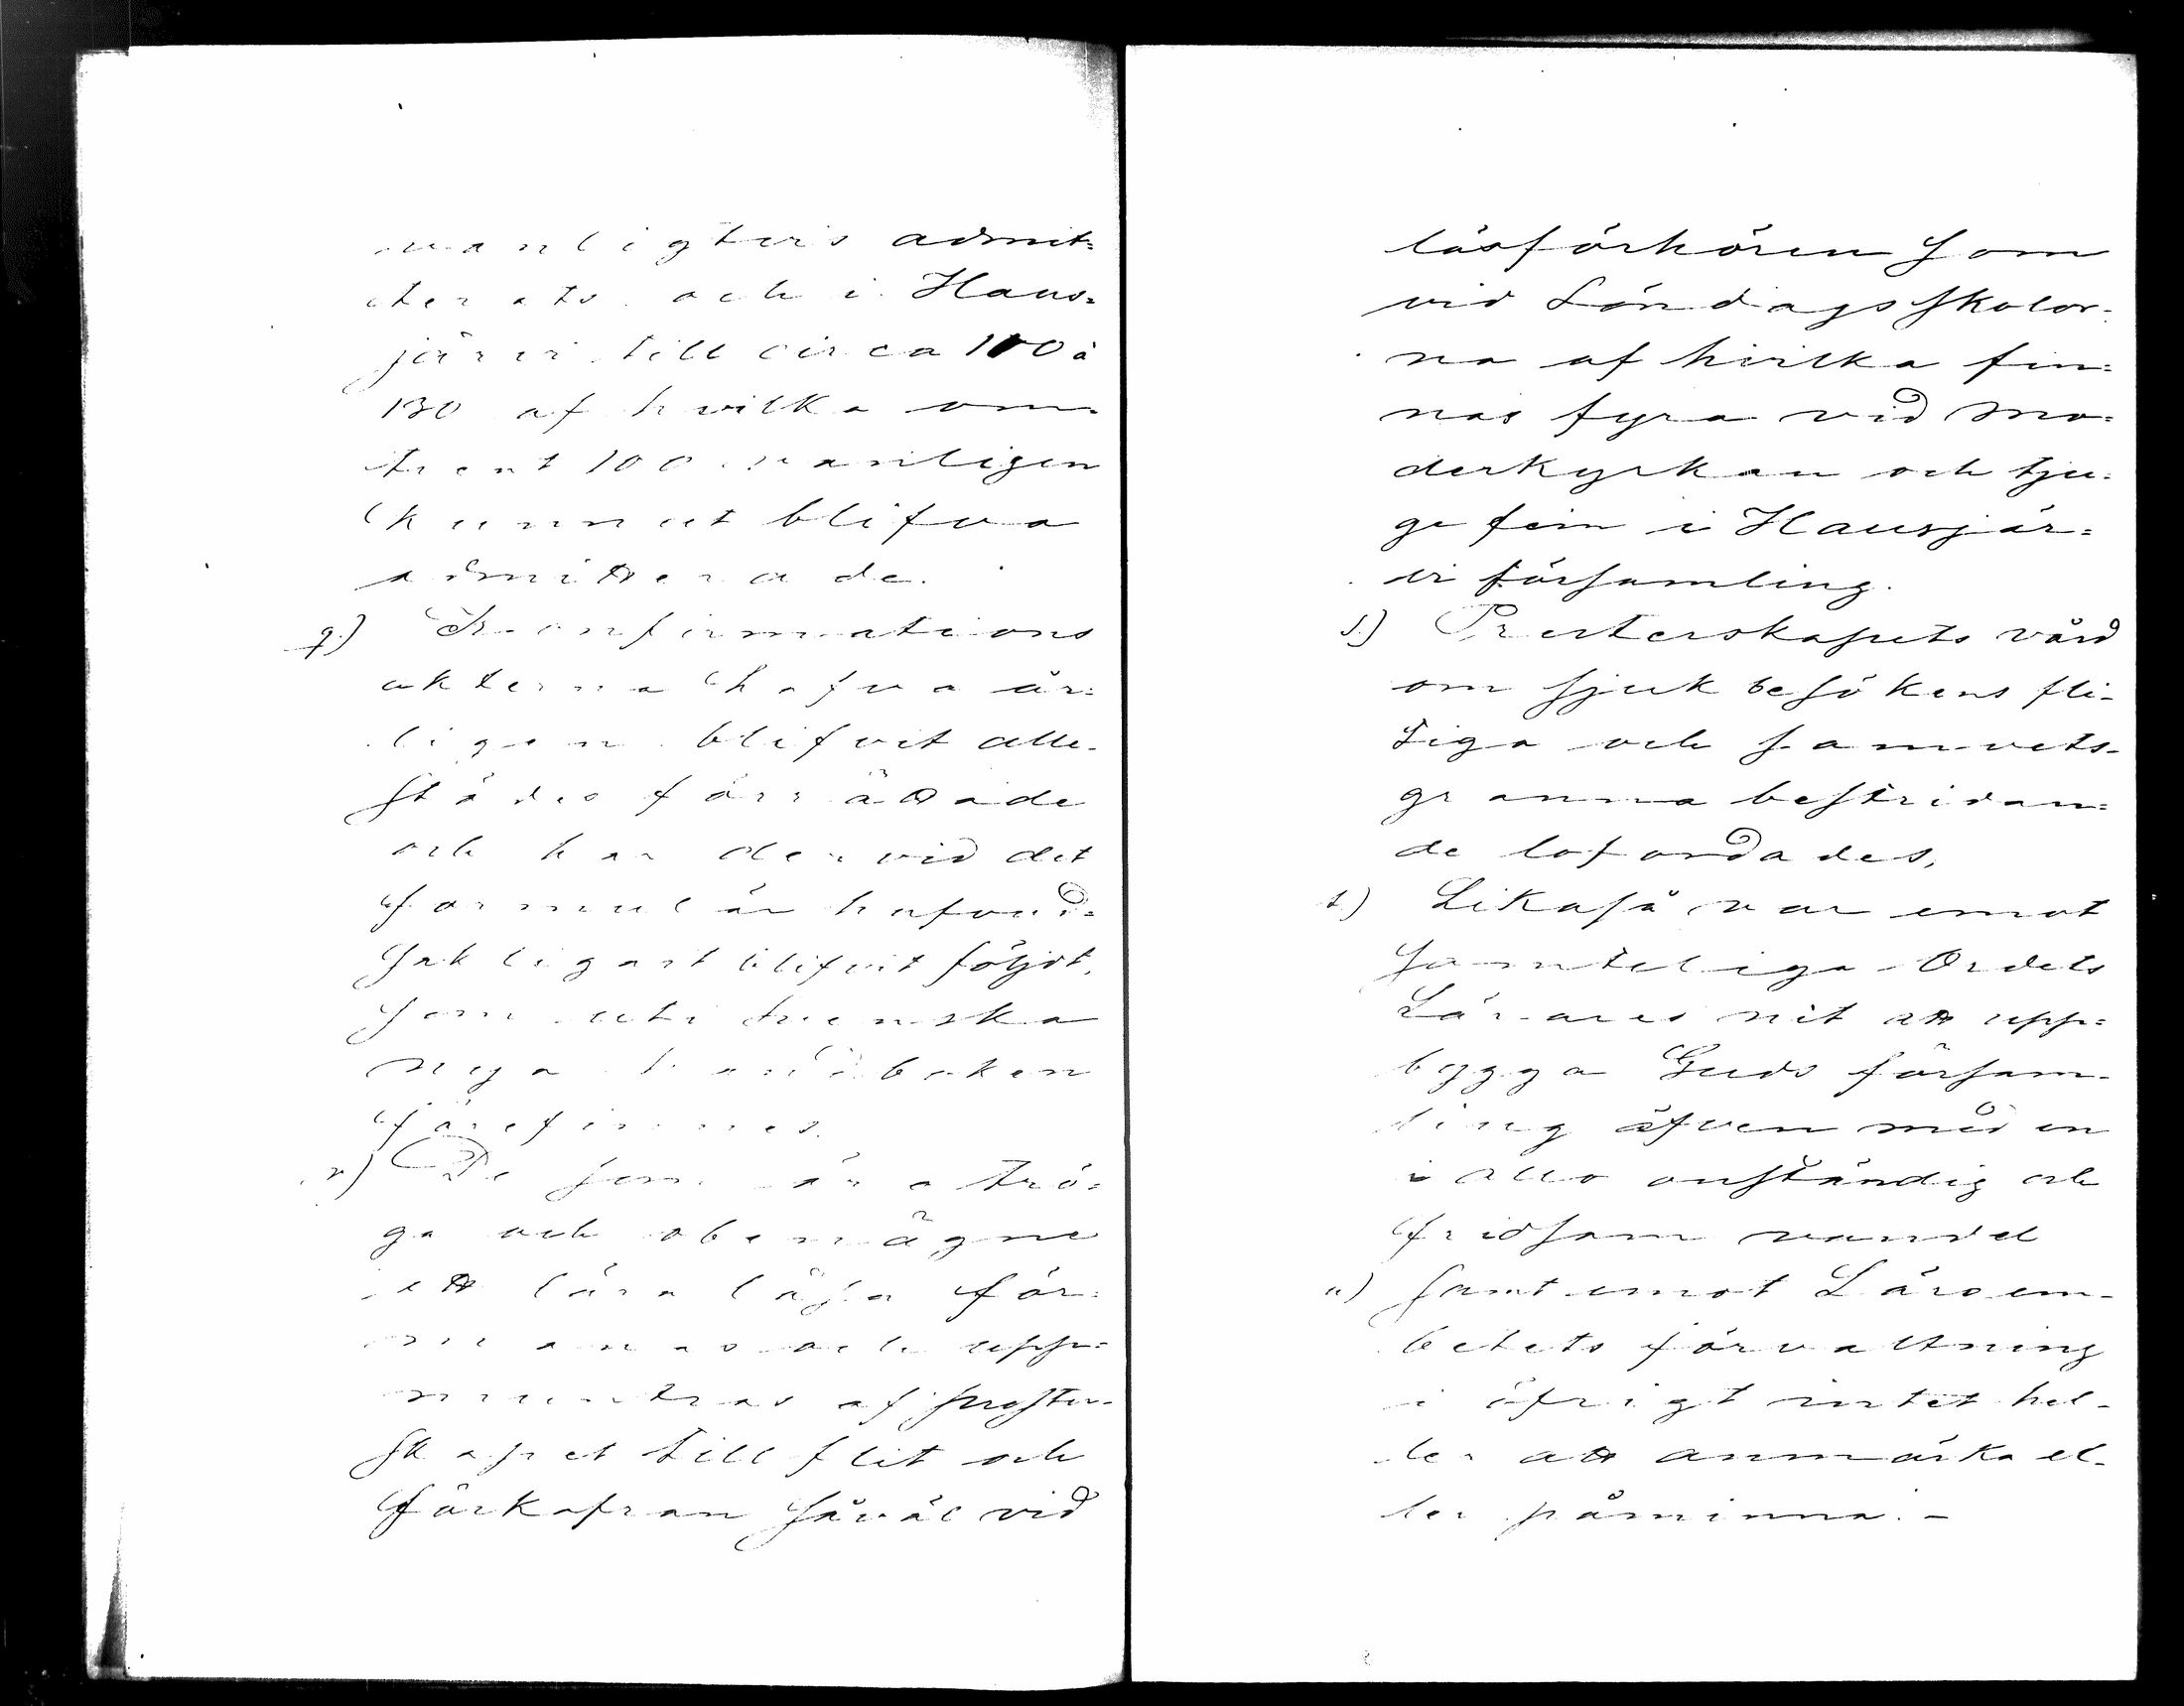 vanligtvis admit=
terats och i Haus=
järvi till circa 100 à
130 af hvilka om=
trent 100 vanligen
kunnat blifva
admitterade.
q.) Konfirmations
akterna hafva år=
ligen blifvit alle-
städes förrättade
och har dervid det
formulär hufvud=
sakligast blifvit följdt,
som uti svenska
nya handboken
förefinnes.
r) De som äro trö=
ga och obenägne
att lära läsa för=
manas och upp=
muntras af prester-
skapet till flit och
förkofran såväl vid
läsförhören som
vid Söndagsskolor-
na af hvilka fin=
nas fyra vid mo=
derkyrkan och tju=
go fem i Hausjär=
vi församling.
s.) Presterskapets vård
om sjukbesökens fli-
tiga och samvets-
granna bestridan=
de lofordades,
t.) Likaså var emot
samteliga Ordets
Lärares nit att upp=
bygga Guds försam-
ling äfven med en
i allo anständig och
fridsam vandel
u) samt emot Läroem-
betets förvaltning
i öfrigt intet hel-
ler att anmärka el-
ler påminna. -